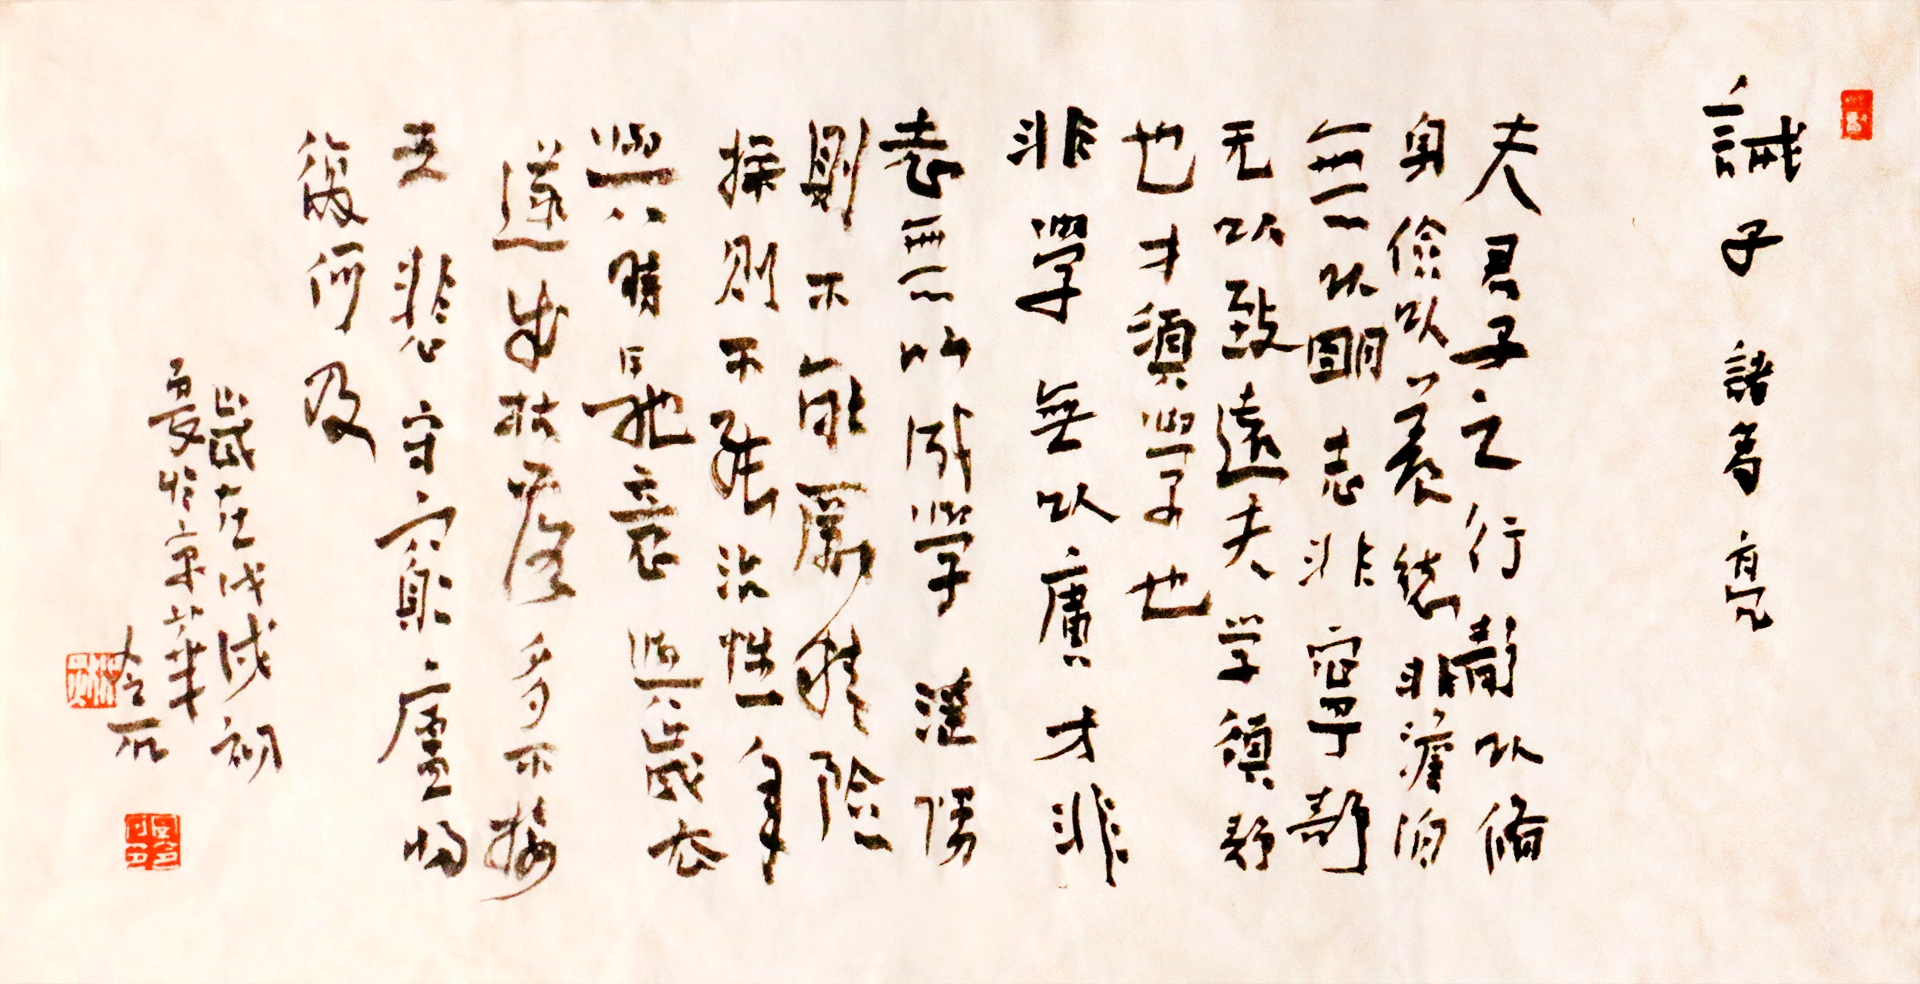 誡子 諸葛亮
夫君子之行靜以脩
身儉以養德非澹泊
無以明志非寧靜
无以致遠夫学須静
也才須學也
非學無以廣才非
志無以成學淫慢
則不能勵精險
操則不能治性年
與時馳意與歲去
遂成枯落多不接
世悲守窮廬將
復何及
歲在戊戌初
夏於京華
石